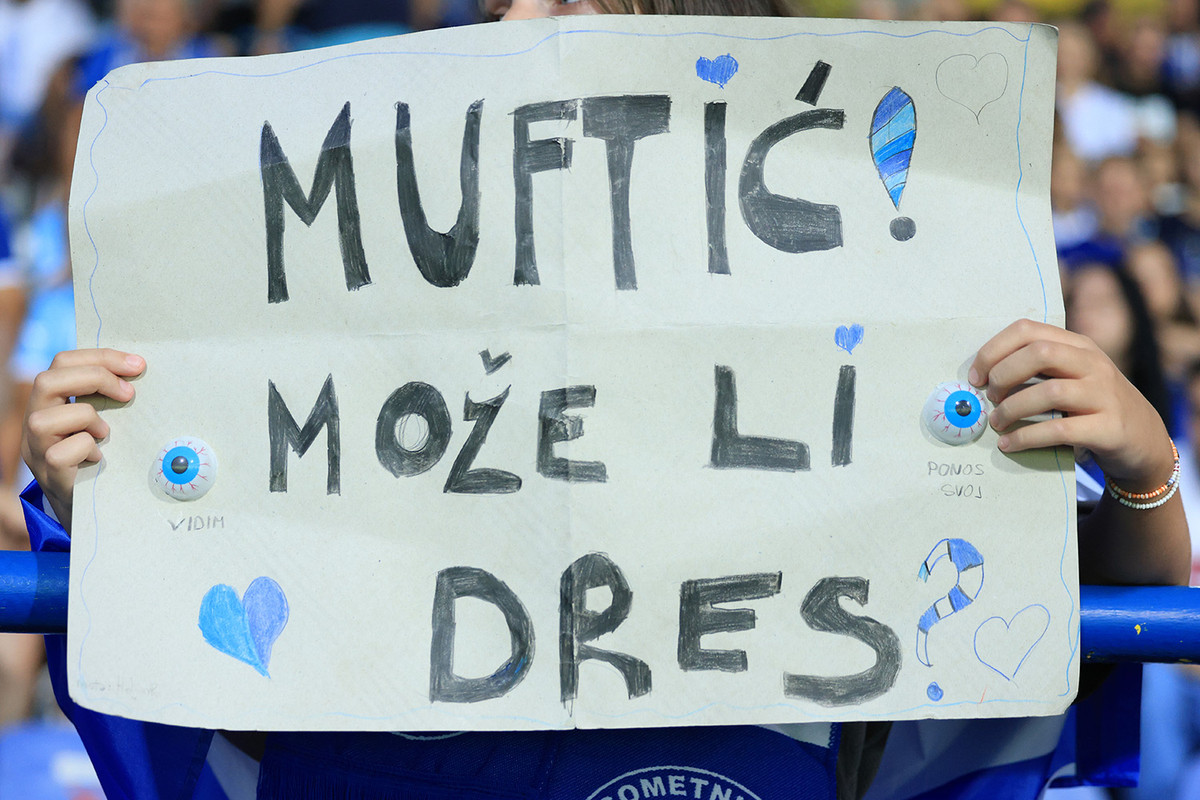 MUFTIĆ!
MOŽE LI
VIDIM
PONOS
SVOJ
DRES?